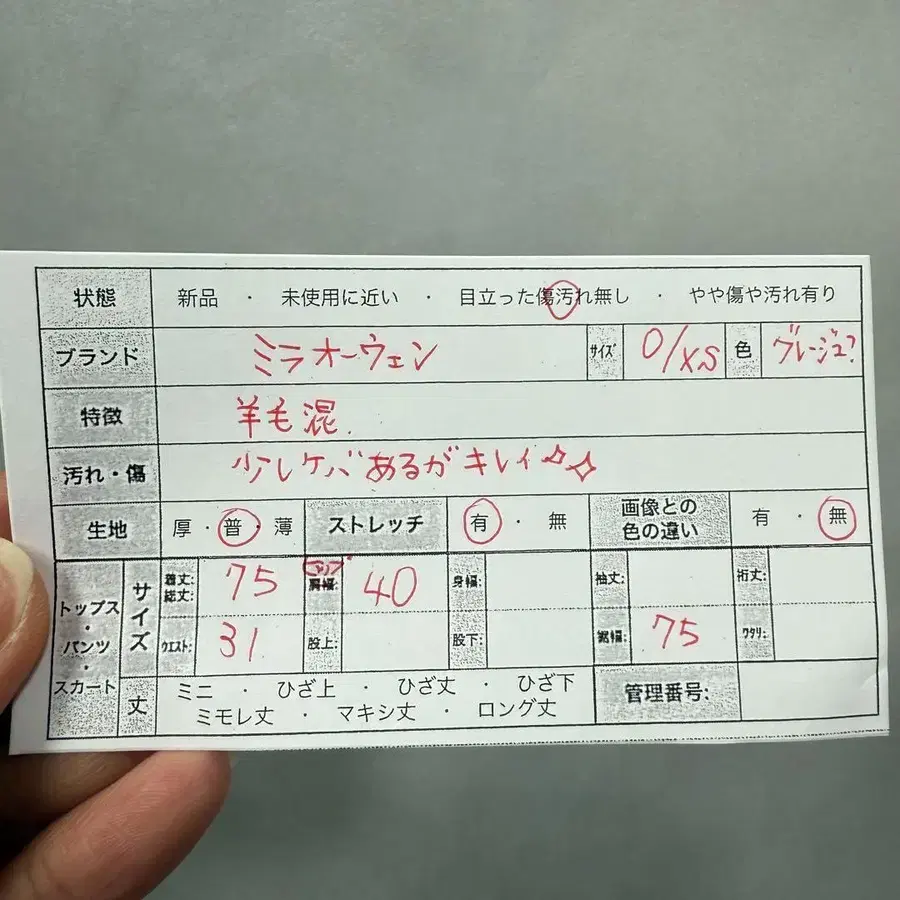 状態 新品 ・ 未使用に近い ・ 目立った傷汚れ無し ・ やや傷や汚れ有り
ブランド ミラオーウェン サイズ 0/XS 色 グレージュ?
特徴 羊毛混.
汚れ・傷 少しケバあるがキレイ✧✧
生地 厚・普・薄 ストレッチ 有 ・ 無 画像との色の違い 有 ・ 無
トップス・パンツ・スカート サイズ 着丈: 総丈: 75 ヒップ 肩幅: 40 身幅: 袖丈: 裄丈:
ウエスト: 31 股上: 股下: 裾幅: 75 ワタリ:
丈 ミニ ・ ひざ上 ・ ひざ丈 ・ ひざ下
ミモレ丈 ・ マキシ丈 ・ ロング丈 管理番号: